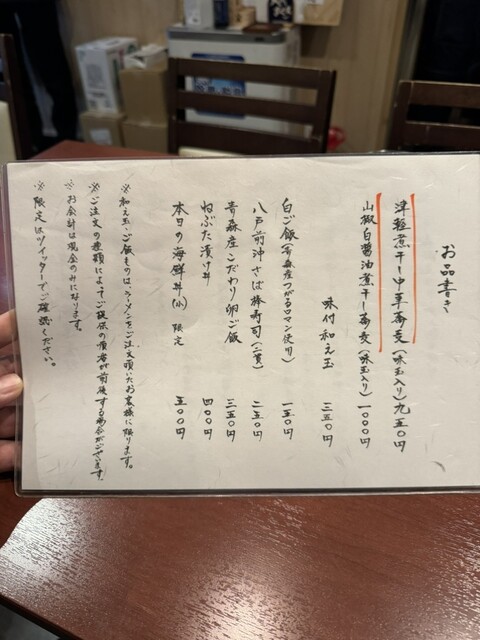 お品書き
津軽煮干し中華蕎麦(味玉入り)九五〇円
山椒白醤油煮干し蕎麦(味玉入り)一〇〇〇円
味付和え玉 三五〇円
白ご飯(青森産つがるロマン使用)一五〇円
八戸前沖さば棒寿司(二貫)二五〇円
青森産こだわり卵ご飯 三五〇円
ねぶた漬け丼 四〇〇円
本日の海鮮丼(小)限定 五〇〇円
※和え玉・ご飯ものは、ラーメンをご注文頂いたお客様に限ります。
※ご注文の種類によってご提供の順番が前後する場合がございます。
※お会計は現金のみになります。
※限定はツイッターでご確認ください。